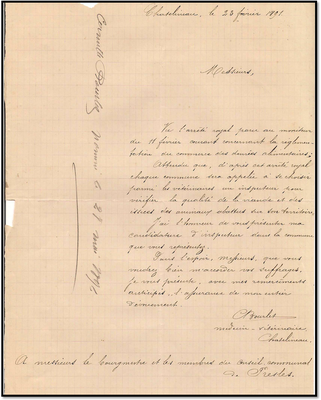 Chatelineau, le 23 février 1891
Messieurs,
Vu l'arrêté royal paru au moniteur
du février courant concernant la réglemen-
tation du commerce des denrées alimentaires;
Attendu que, d'après cet arrêté royal
chaque commune sera appelée à se choisir
parmi les vétérinaires un inspecteur pour
vérifier la qualité de la viande et des
issues des animaux abattus sur son territoire,
J'ai l'honneur de vous présenter ma
candidature d'inspecteur dans la commune
que vous représentez.
Dans l'espoir, messieurs, que vous
voudrez bien m'accorder vos suffrages,
je vous présente, avec mes remerciements
anticipés, l'assurance de mon entier
dévouement.
médecin-vétérinaire
Chatelineau.
A messieurs le bourgmestre et les membres du conseil communal
de Presles.